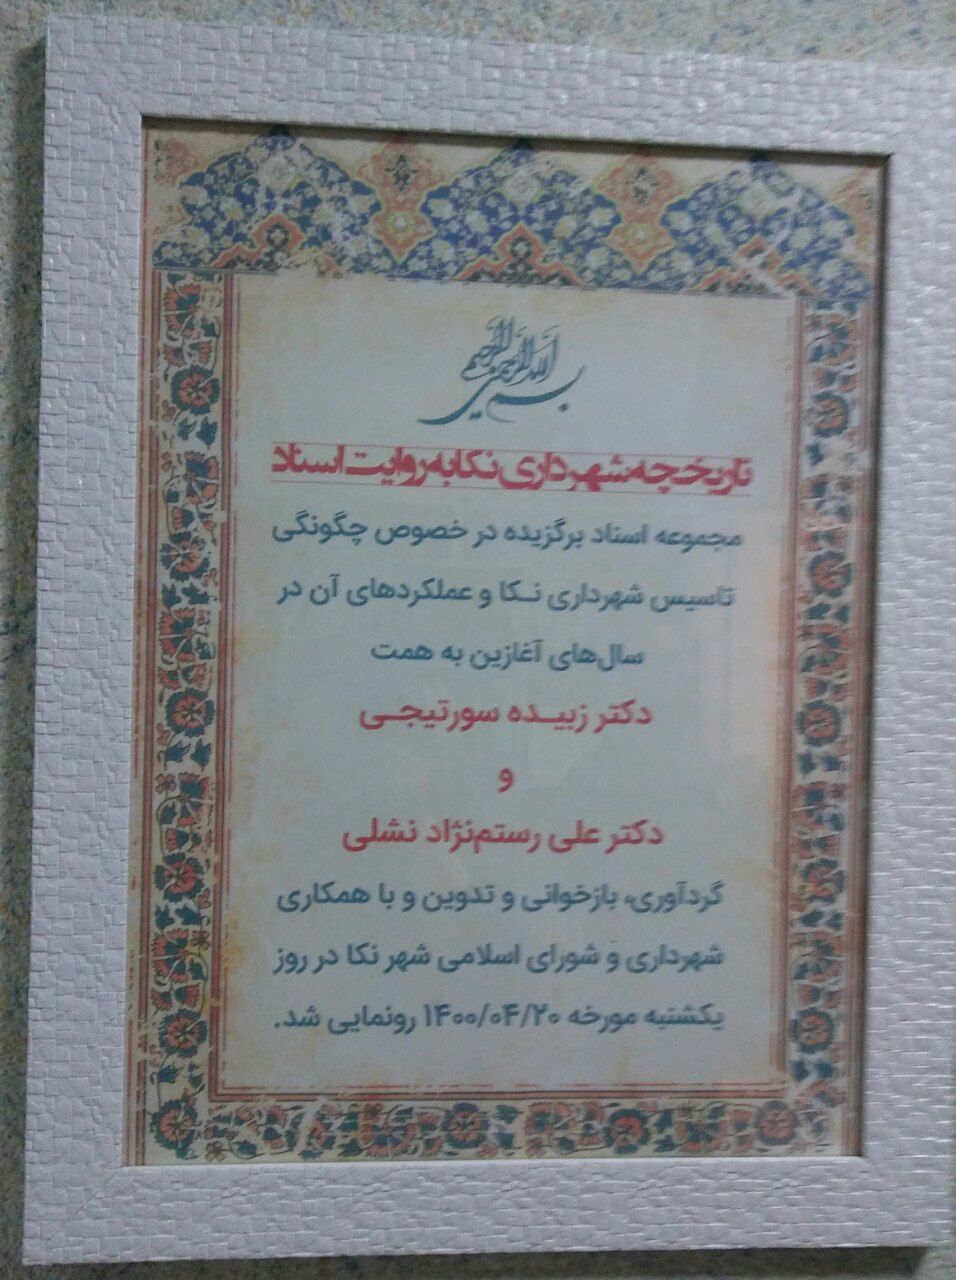 بسم الله الرحمن الرحیم
تاریخچه شهرداری نکا به روایت اسناد
مجموعه اسناد برگزیده در خصوص چگونگی
تاسیس شهرداری نکا و عملکردهای آن در
سال‌های آغازین به همت
دکتر زبیده سورتیجی
و
دکتر علی رستم‌نژاد نشلی
گردآوری، بازخوانی و تدوین و با همکاری
شهرداری و شورای اسلامی شهر نکا در روز
یکشنبه مورخه ۱۴۰۰/۰۴/۲۰ رونمایی شد.